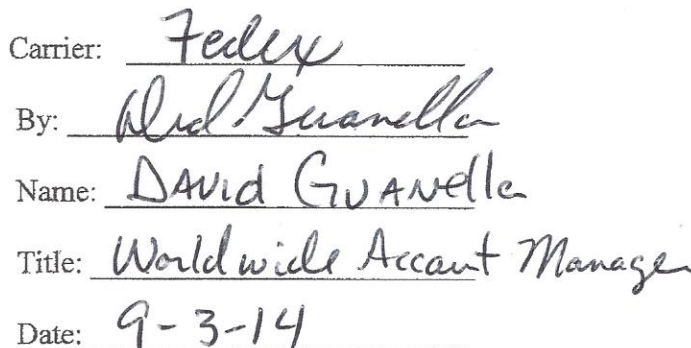 Carrier: Fedex
By: David Guanella
Name: DAVID GUANella
Title: Worldwide Account Manager
Date: 9-3-14